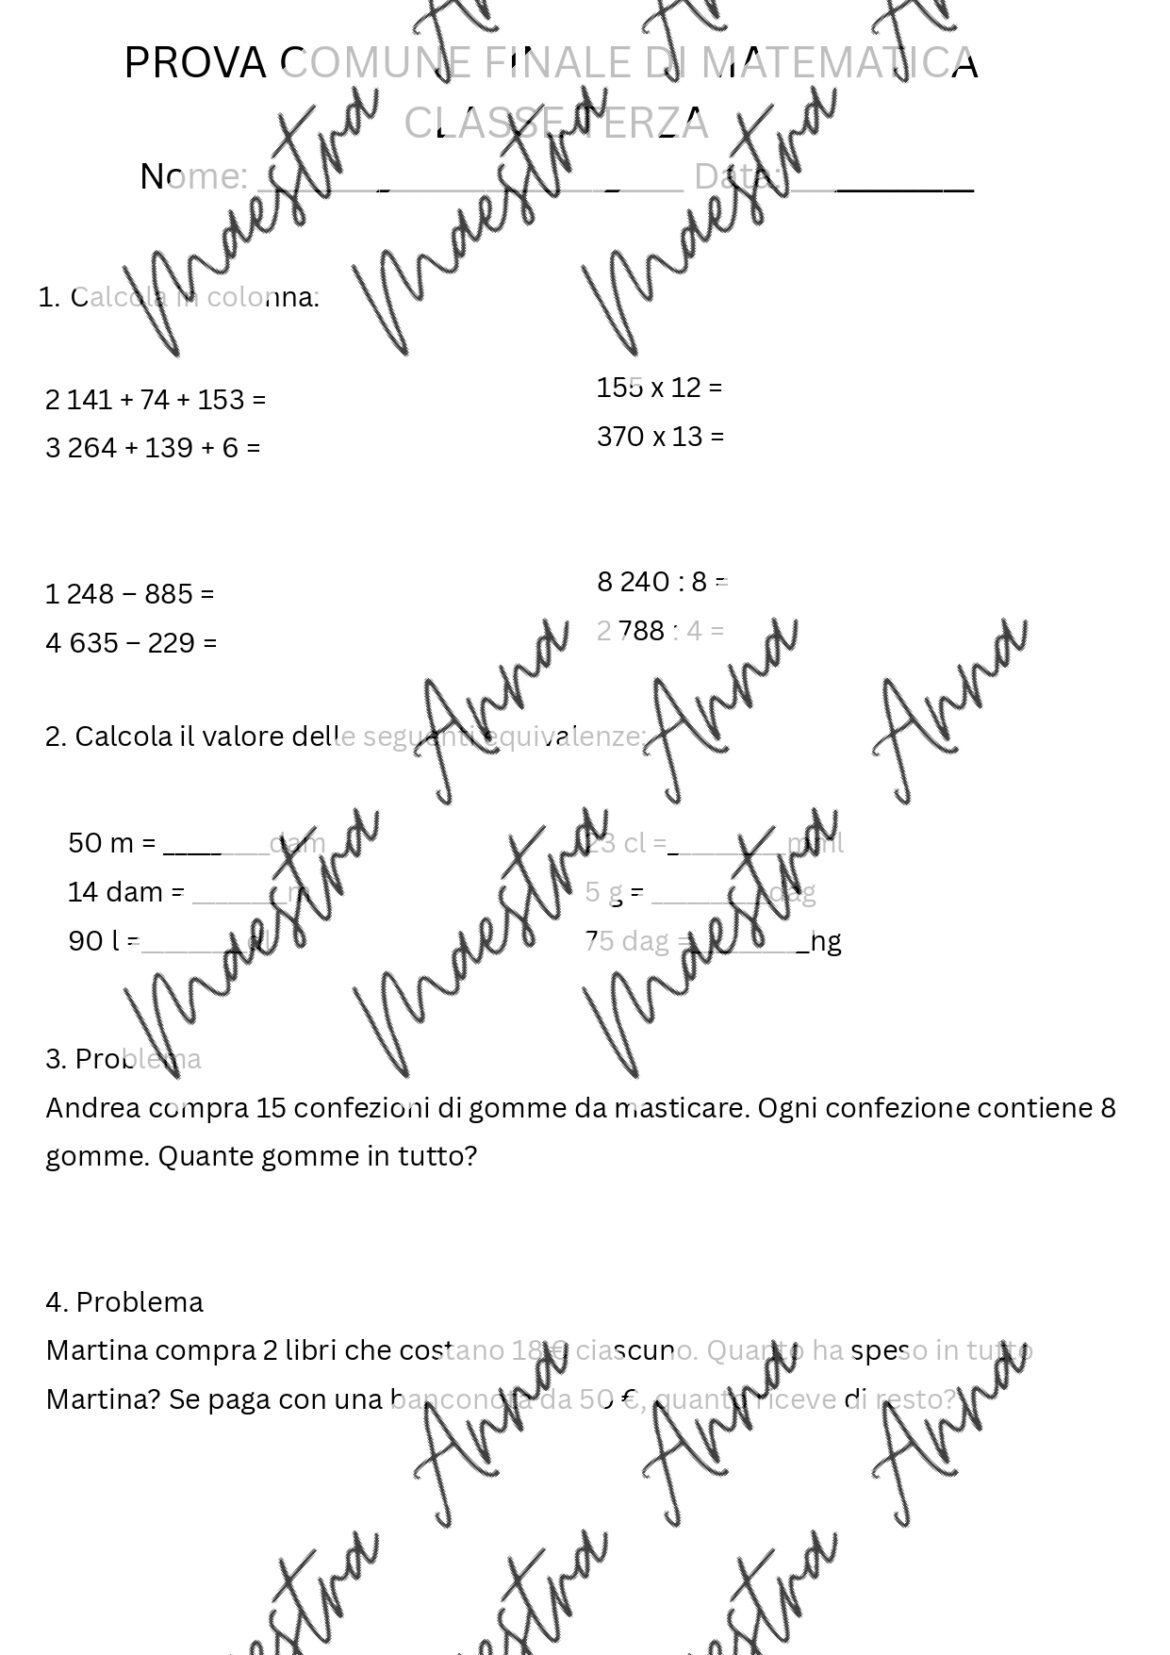 PROVA COMUNE FINALE DI MATEMATICA
CLASSE TERZA
Nome: ______________________ Data: __________
1. Calcola in colonna:
2 141 + 74 + 153 =
3 264 + 139 + 6 =
155 x 12 =
370 x 13 =
1 248 – 885 =
4 635 – 229 =
8 240 : 8 =
2 788 : 4 =
2. Calcola il valore delle seguenti equivalenze:
50 m = _________dam
14 dam = ________m
90 l =_________dl
23 cl =__________ml
5 g = __________dag
75 dag =__________hg
3. Problema
Andrea compra 15 confezioni di gomme da masticare. Ogni confezione contiene 8
gomme. Quante gomme in tutto?
4. Problema
Martina compra 2 libri che costano 18 € ciascuno. Quanto ha speso in tutto
Martina? Se paga con una banconota da 50 €, quanto riceve di resto?
Maestra Anna
Maestra Anna
Maestra Anna
Maestra Anna
Maestra Anna
Maestra Anna